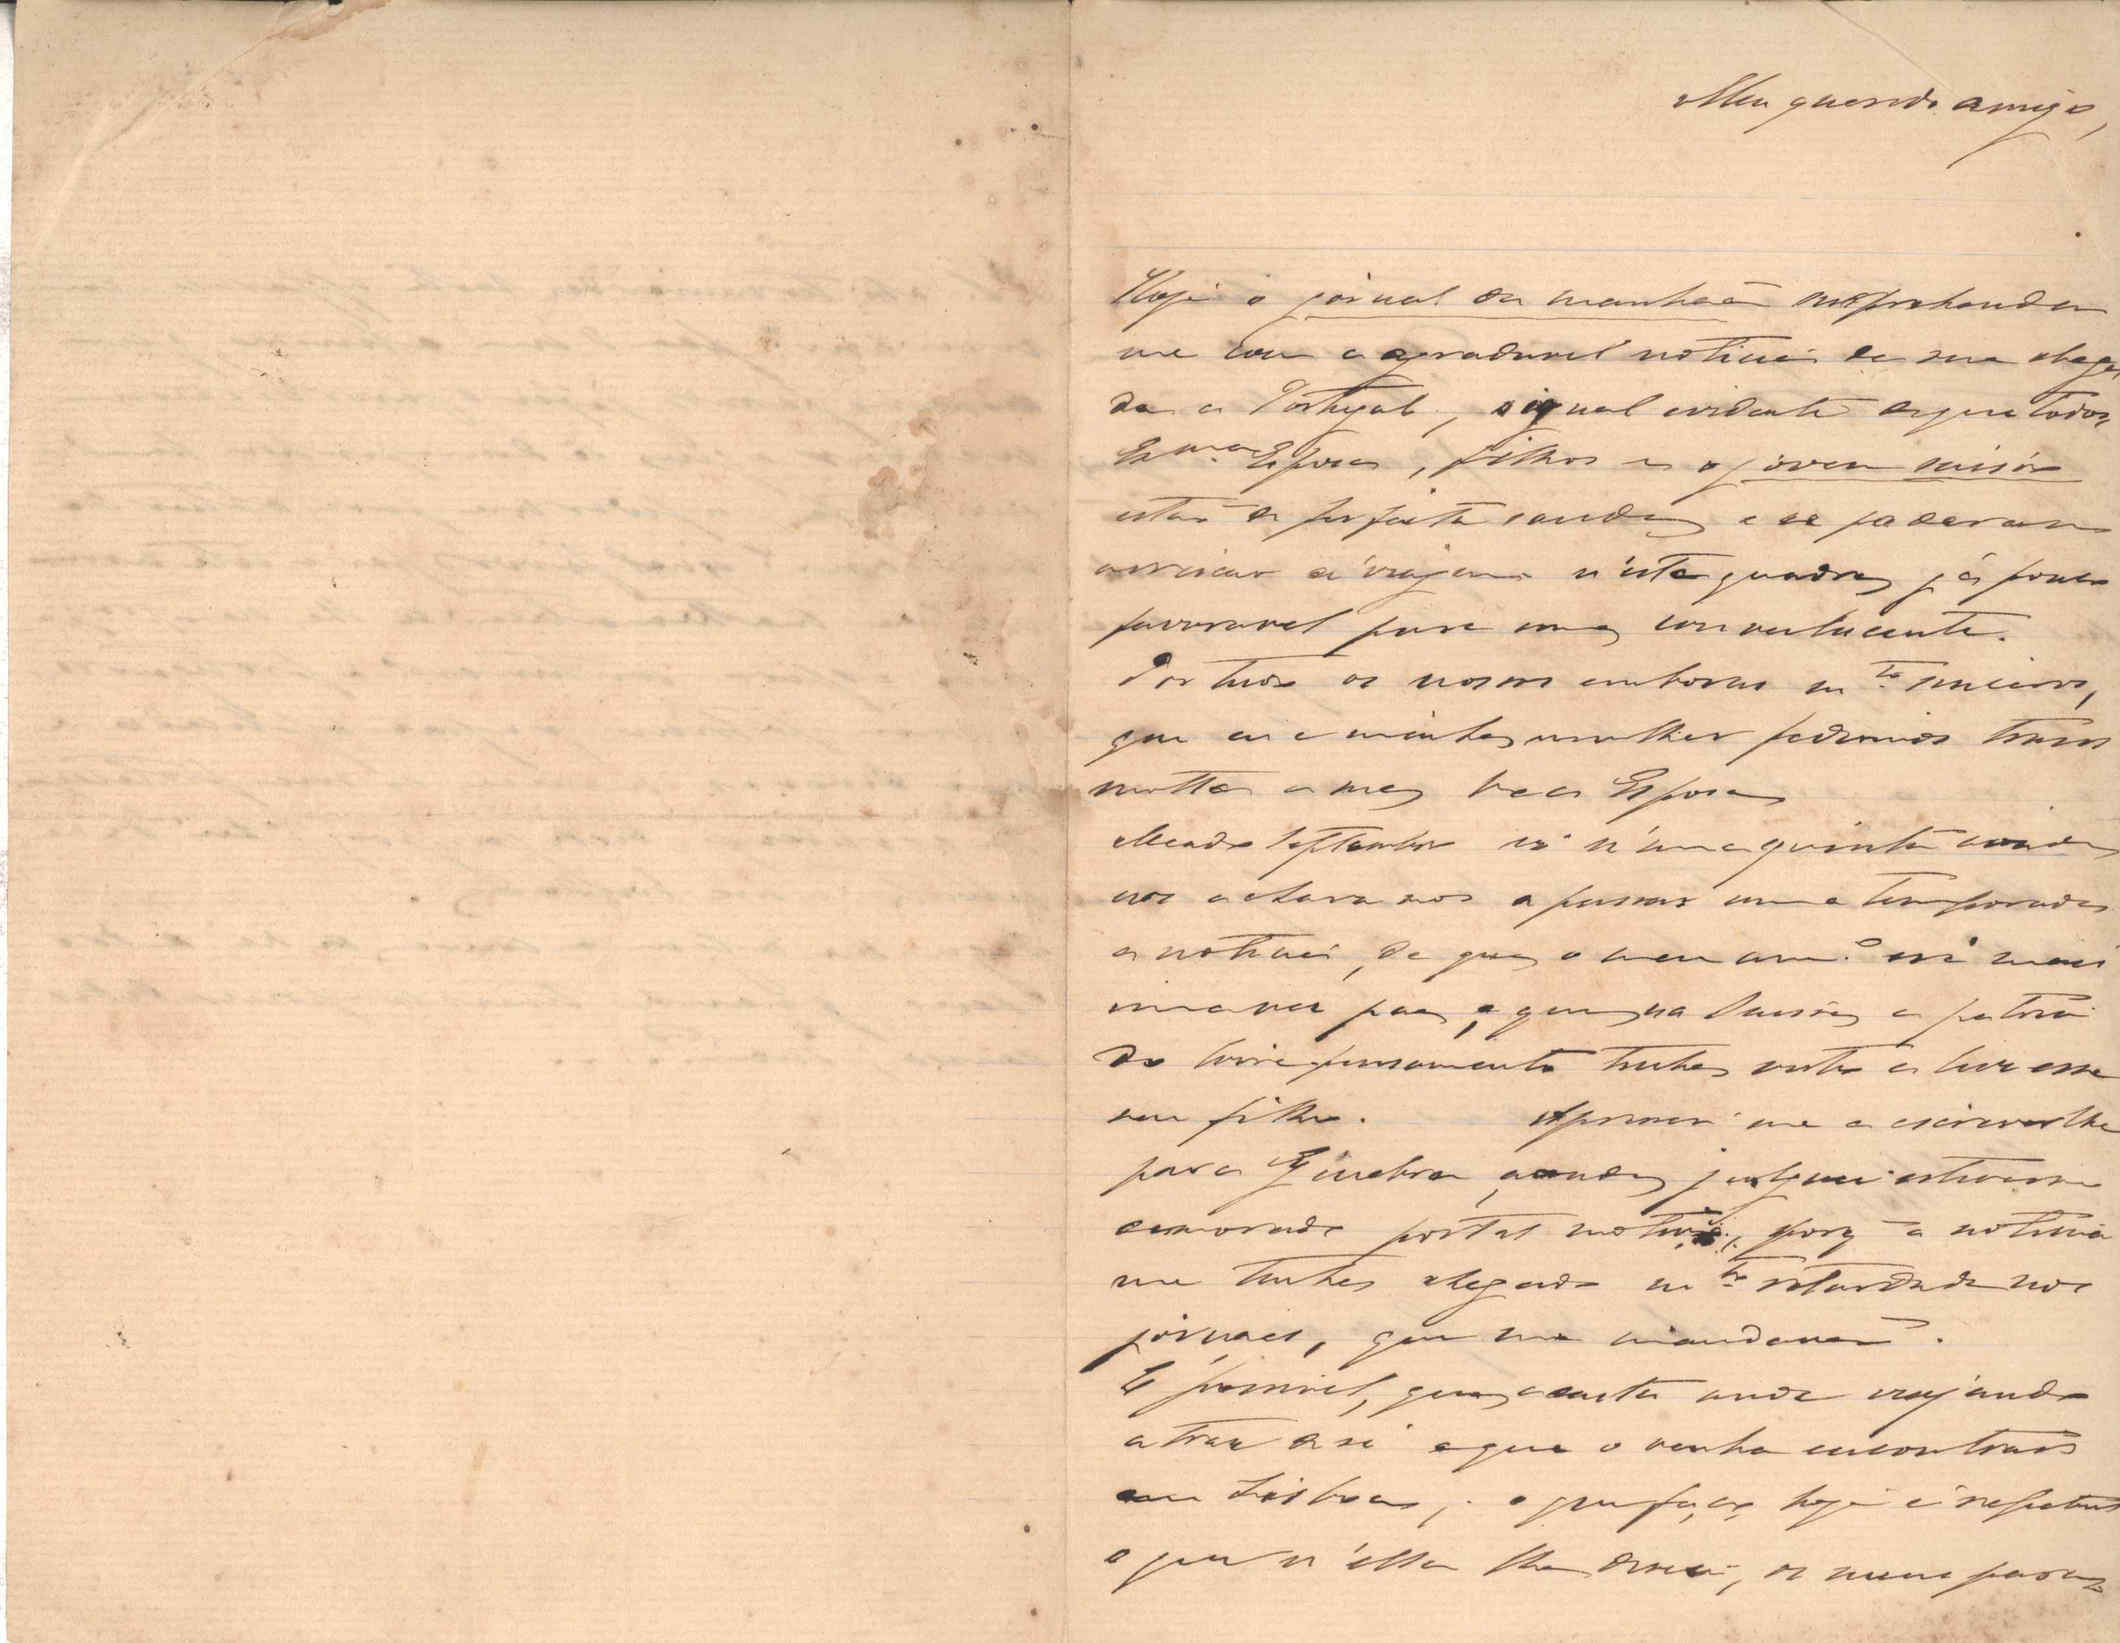 Meu querido amigo,
Hoje o jornal da manhaã surprehendeu
me com a agradavel noticia da sua chega
da a Portugal, signal evidente de que todos,
Exma. Esposa, filhos e o joven suisso
estão de perfeita saude, e se poderam
arriscar á viagem n'esta quadra, já pouco
favoravel para uma convalescente.
Por tudo os nossos emboras mto. sinceros,
que eu e minha mulher pedimos trans
mitta a sua boa Esposa
Meado septembro li n'uma quinta aonde
nos achavamos a passar uma temporada
a noticia, de que o meu amo. era mais
uma vez pae, e que na Suissa a patria
do livre pensamento tinha visto a luz esse
seu filho. Apressei me a escrever lhe
para Genebra, aonde julguei estivesse
demorado por tal motivo, porq a noticia
me tinha chegado mto. retardada nos
jornaes, que me mandavam.
E possivel, que a carta ande viajando
atraz de si e que o venha encontrar
em Lisboa; o que faço hoje é repetir
o que n'ella lhe disse, os meus para